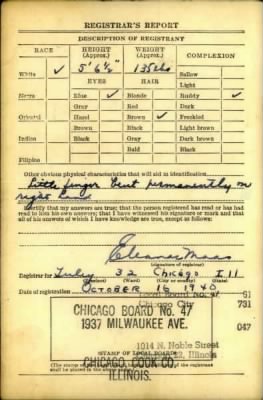 REGISTRAR'S REPORT
DESCRIPTION OF REGISTRANT
RACE HEIGHT (Approx.) WEIGHT (Approx.) COMPLEXION
White ✓ 5' 6½" 135 lbs Sallow
EYES HAIR Light
Negro Blue ✓ Blonde Ruddy ✓
Gray Red Dark
Oriental Hazel Brown ✓ Freckled
Brown Black Light brown
Indian Black Gray Dark brown
Bald Black
Filipino
Other obvious physical characteristics that will aid in identification
Little finger bent permanently on
right hand
I certify that my answers are true; that the person registered has read or has had
read to him his own answers; that I have witnessed his signature or mark and that
all of his answers of which I have knowledge are true, except as follows:
Eleanor Maas
(Signature of registrar)
Registrar for 32 Chicago Ill
Date of registration October 16 1940
Local Board No. 47 51
Chicago City 731
CHICAGO BOARD No. 47
1937 MILWAUKEE AVE. 047
1014 N. Noble Street
22, Illinois
(STAMP OF LOCAL BOARD)
CHICAGO, COOK CO.
ILLINOIS.